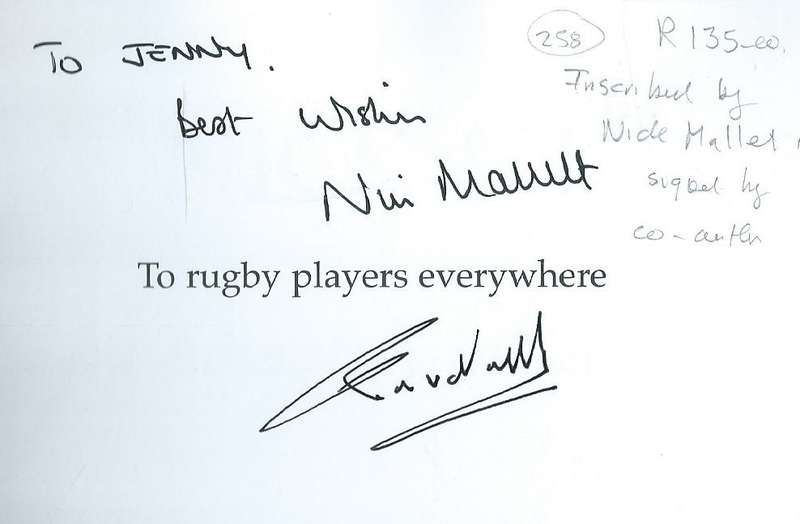 To JENNY.
Best Wishes
Nick Mallett
To rugby players everywhere
258
R 135-00.
Inscribed by
Nick Mallet,
signed by
co-author